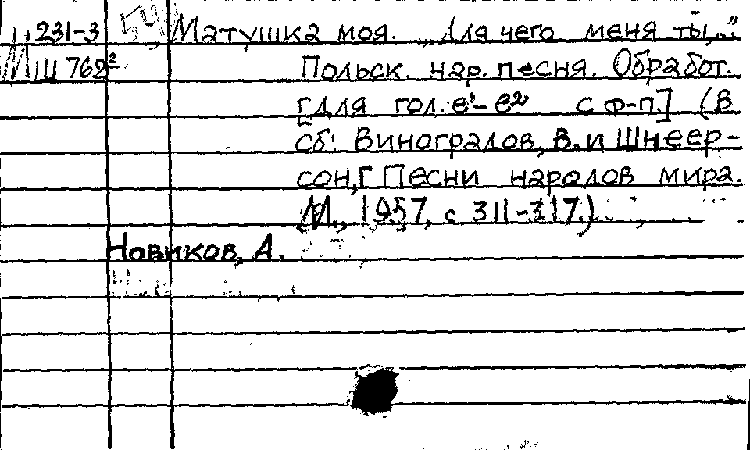 231-3 Матушка моя. „Для чего меня ты,..."
М Ш 768² Польск. нар. песня. Обработ.
[Для гол. e¹–e² с ф-п.] (В
сб: Виноградов, В. и Шнеер-
сон, Г Песни народов мира.
М., 1957, с 311-317.)
Новиков, А.